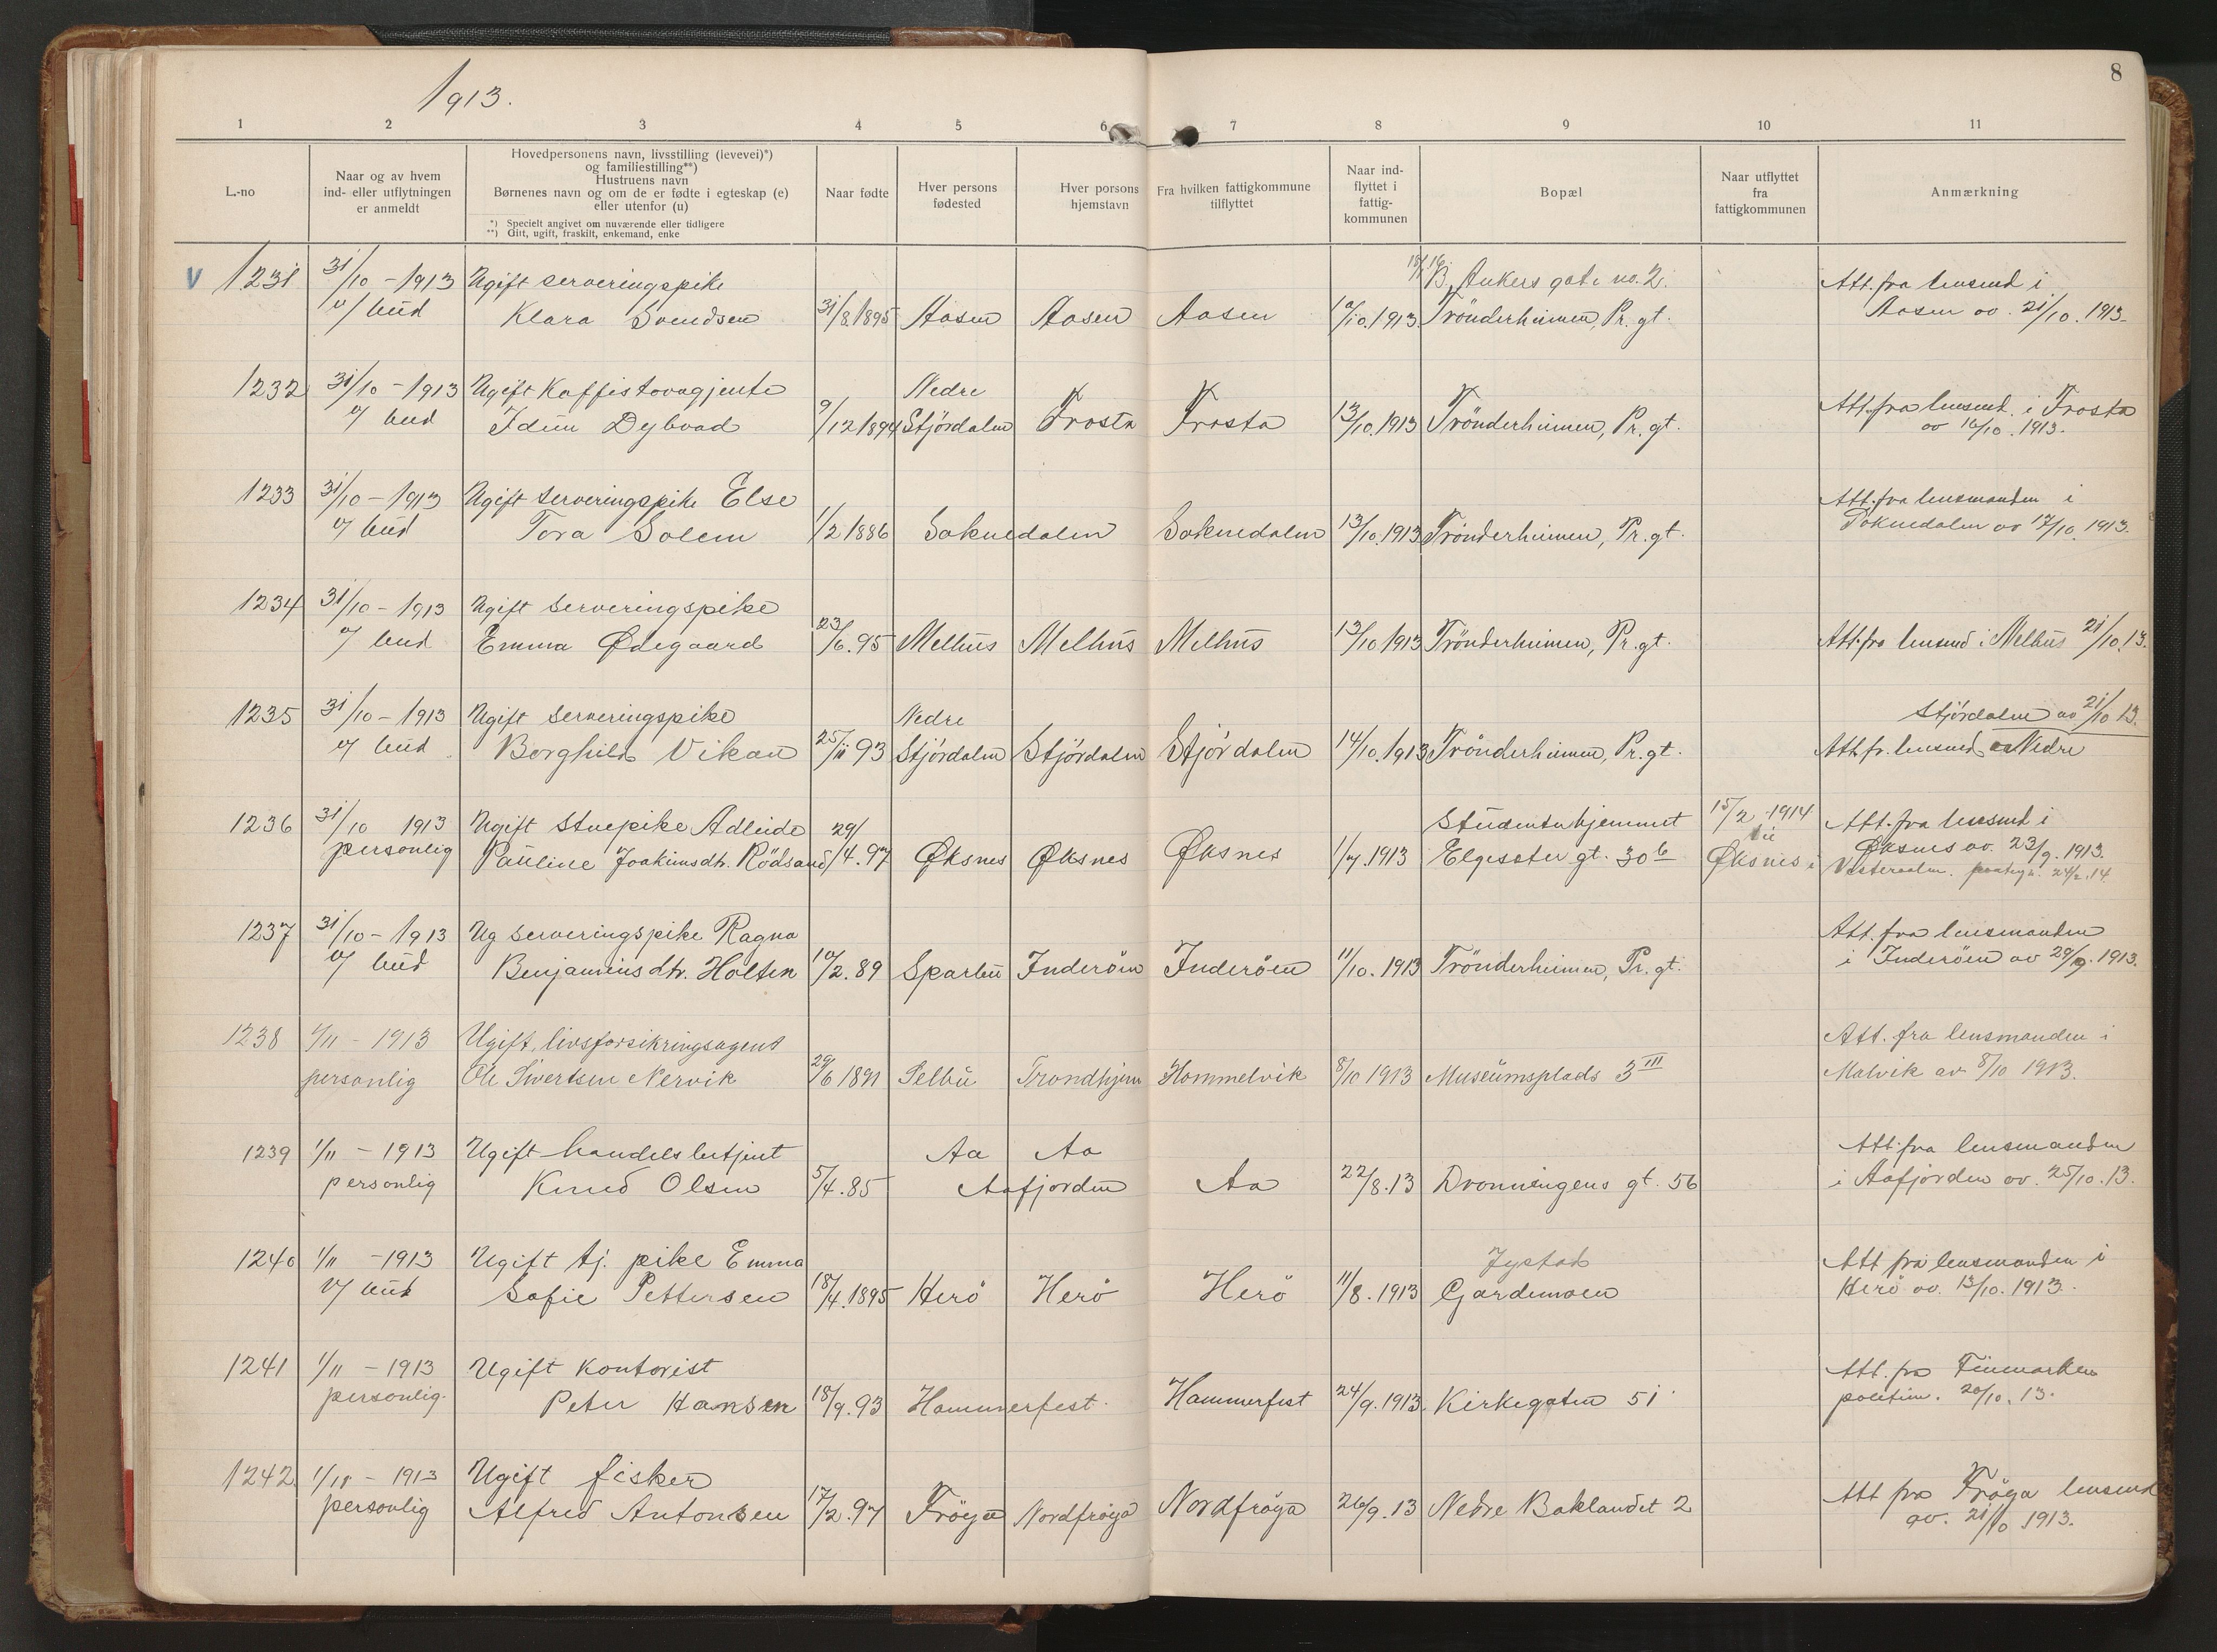 1913.
8
1 2 3 4 5 6 7 8 9 10 11
L.-no
Naar og av hvem
ind- eller utflytningen
er anmeldt
Hovedpersonens navn, livsstilling (levevei)*)
og familiestilling**)
Hustruens navn
Børnenes navn og om de er fødte i egteskap (e)
eller utenfor (u)
*) Specielt angivet om nuværende eller tidligere
**) Gift, ugift, fraskilt, enkemand, enke
Naar fødte
Hver persons
fødested
Hver persons
hjemstavn
Fra hvilken fattigkommune
tilflyttet
Naar ind-
flyttet i
fattig-
kommunen
Bopæl
Naar utflyttet
fra
fattigkommunen
Anmærkning
V 1231 31/10 - 1913 Ugift serveringspike B. Ankers gate no. 2. Att. fra lensmd i
v/ bud Klara Svendsen 31/8 1895 Aasen Aasen Aasen 10/10.1913 Trönderheimen, Pr. gt. Aasen av. 21/10. 1913.
1232 31/10 - 1913 Ugift Kaffistovagjente Nedre Att. fra lensmd. i Frosta
v/ bud Idun Dybvad 9/12 1894 Stjördalen Frosta Frosta 13/10.1913 Trönderheimen, Pr. gt. av 16/10. 1913.
1233 31/10 - 1913 Ugift serveringspike Else Att. fra lensmanden i
v/ bud Tora Solem 1/2 1886 Soknedalen Soknedalen 13/10.1913 Trönderheimen, Pr. gt. Soknedalen av 17/10. 1913.
1234 31/10 - 1913 Ugift serveringspike
v/ bud Emma Ødegaard 23/6.95 Melhus Melhus Melhus 13/10 1913 Trönderheimen, Pr. gt. Att. fra lensmd i Melhus 21/10.13.
1235 31/10 - 1913 Ugift serveringspike Nedre Stjördalen av 21/10 13.
v/ bud Borghild Vikan 25/11 93 Stjördalen Stjördalen Stjördalen 14/10.1913 Trönderheimen, Pr. gt. Att. fr. lensmd Nedre
1236 31/10 1913 Ugift stuepike Adleide 29/ Studenterhjemmet 15/2 1914 Att. fra lensmd i
personlig Pauline Joakimsdtr. Rödsand /4.97 Øksnes Øksnes Øksnes 1/7.1913 Elgesæter gt. 30 b til Øksnes i Øksnes av. 23/9. 1913.
Vesteraalen. 24/2.14.
1237 31/10 - 1913 Ug serveringspike Ragna Att. fra lensmanden
v/ bud Benjaminsdtr. Holten 10/2.89 Sparbu Inderöen Inderöen 11/10.1913 Trönderheimen, Pr. gt. i Inderöen av 29/9.1913.
1238 1/11 - 1913 Ugift, livsforsikringsagent Att. fra lensmanden i
personlig Ole Sivertsen Nervik 29/6 1891 Selbu Trondhjem Hommelvik 8/10 1913 Museumsplads 3 III Malvik av 8/10 1913.
1239 1/11 - 1913 Ugift handelsbetjent Aa Aa Att. fra lensmanden
personlig Knud Olsen 5/4.85 Aafjorden Aa 22/8.13 Dronningens gt. 56 i Aafjorden av. 25/10.13.
1240 1/11 - 1913 Ugift tj. pike Emma Jystad Att fra lensmanden i
v/ bud Sofie Pettersen 18/4.1895 Herö Herö Herö 11/8.1913 Gardemoen Herö av. 13/10.1913.
1241 1/11 - 1913 Ugift kontorist Att. fra Finmarken
personlig. Peter Hansen 18/9.93 Hammerfest. Hammerfest 24/9.1913. Kirkegaten 51 politim. 20/10.13.
1242 1/11 - 1913 Ugift fisker Att fra Fröya lensmd
personlig Alfred Antonsen 17/2.97 Fröya Nordfröya Nordfröya 26/9.13 Nedre Baklandet 2 av. 21/10 1913.